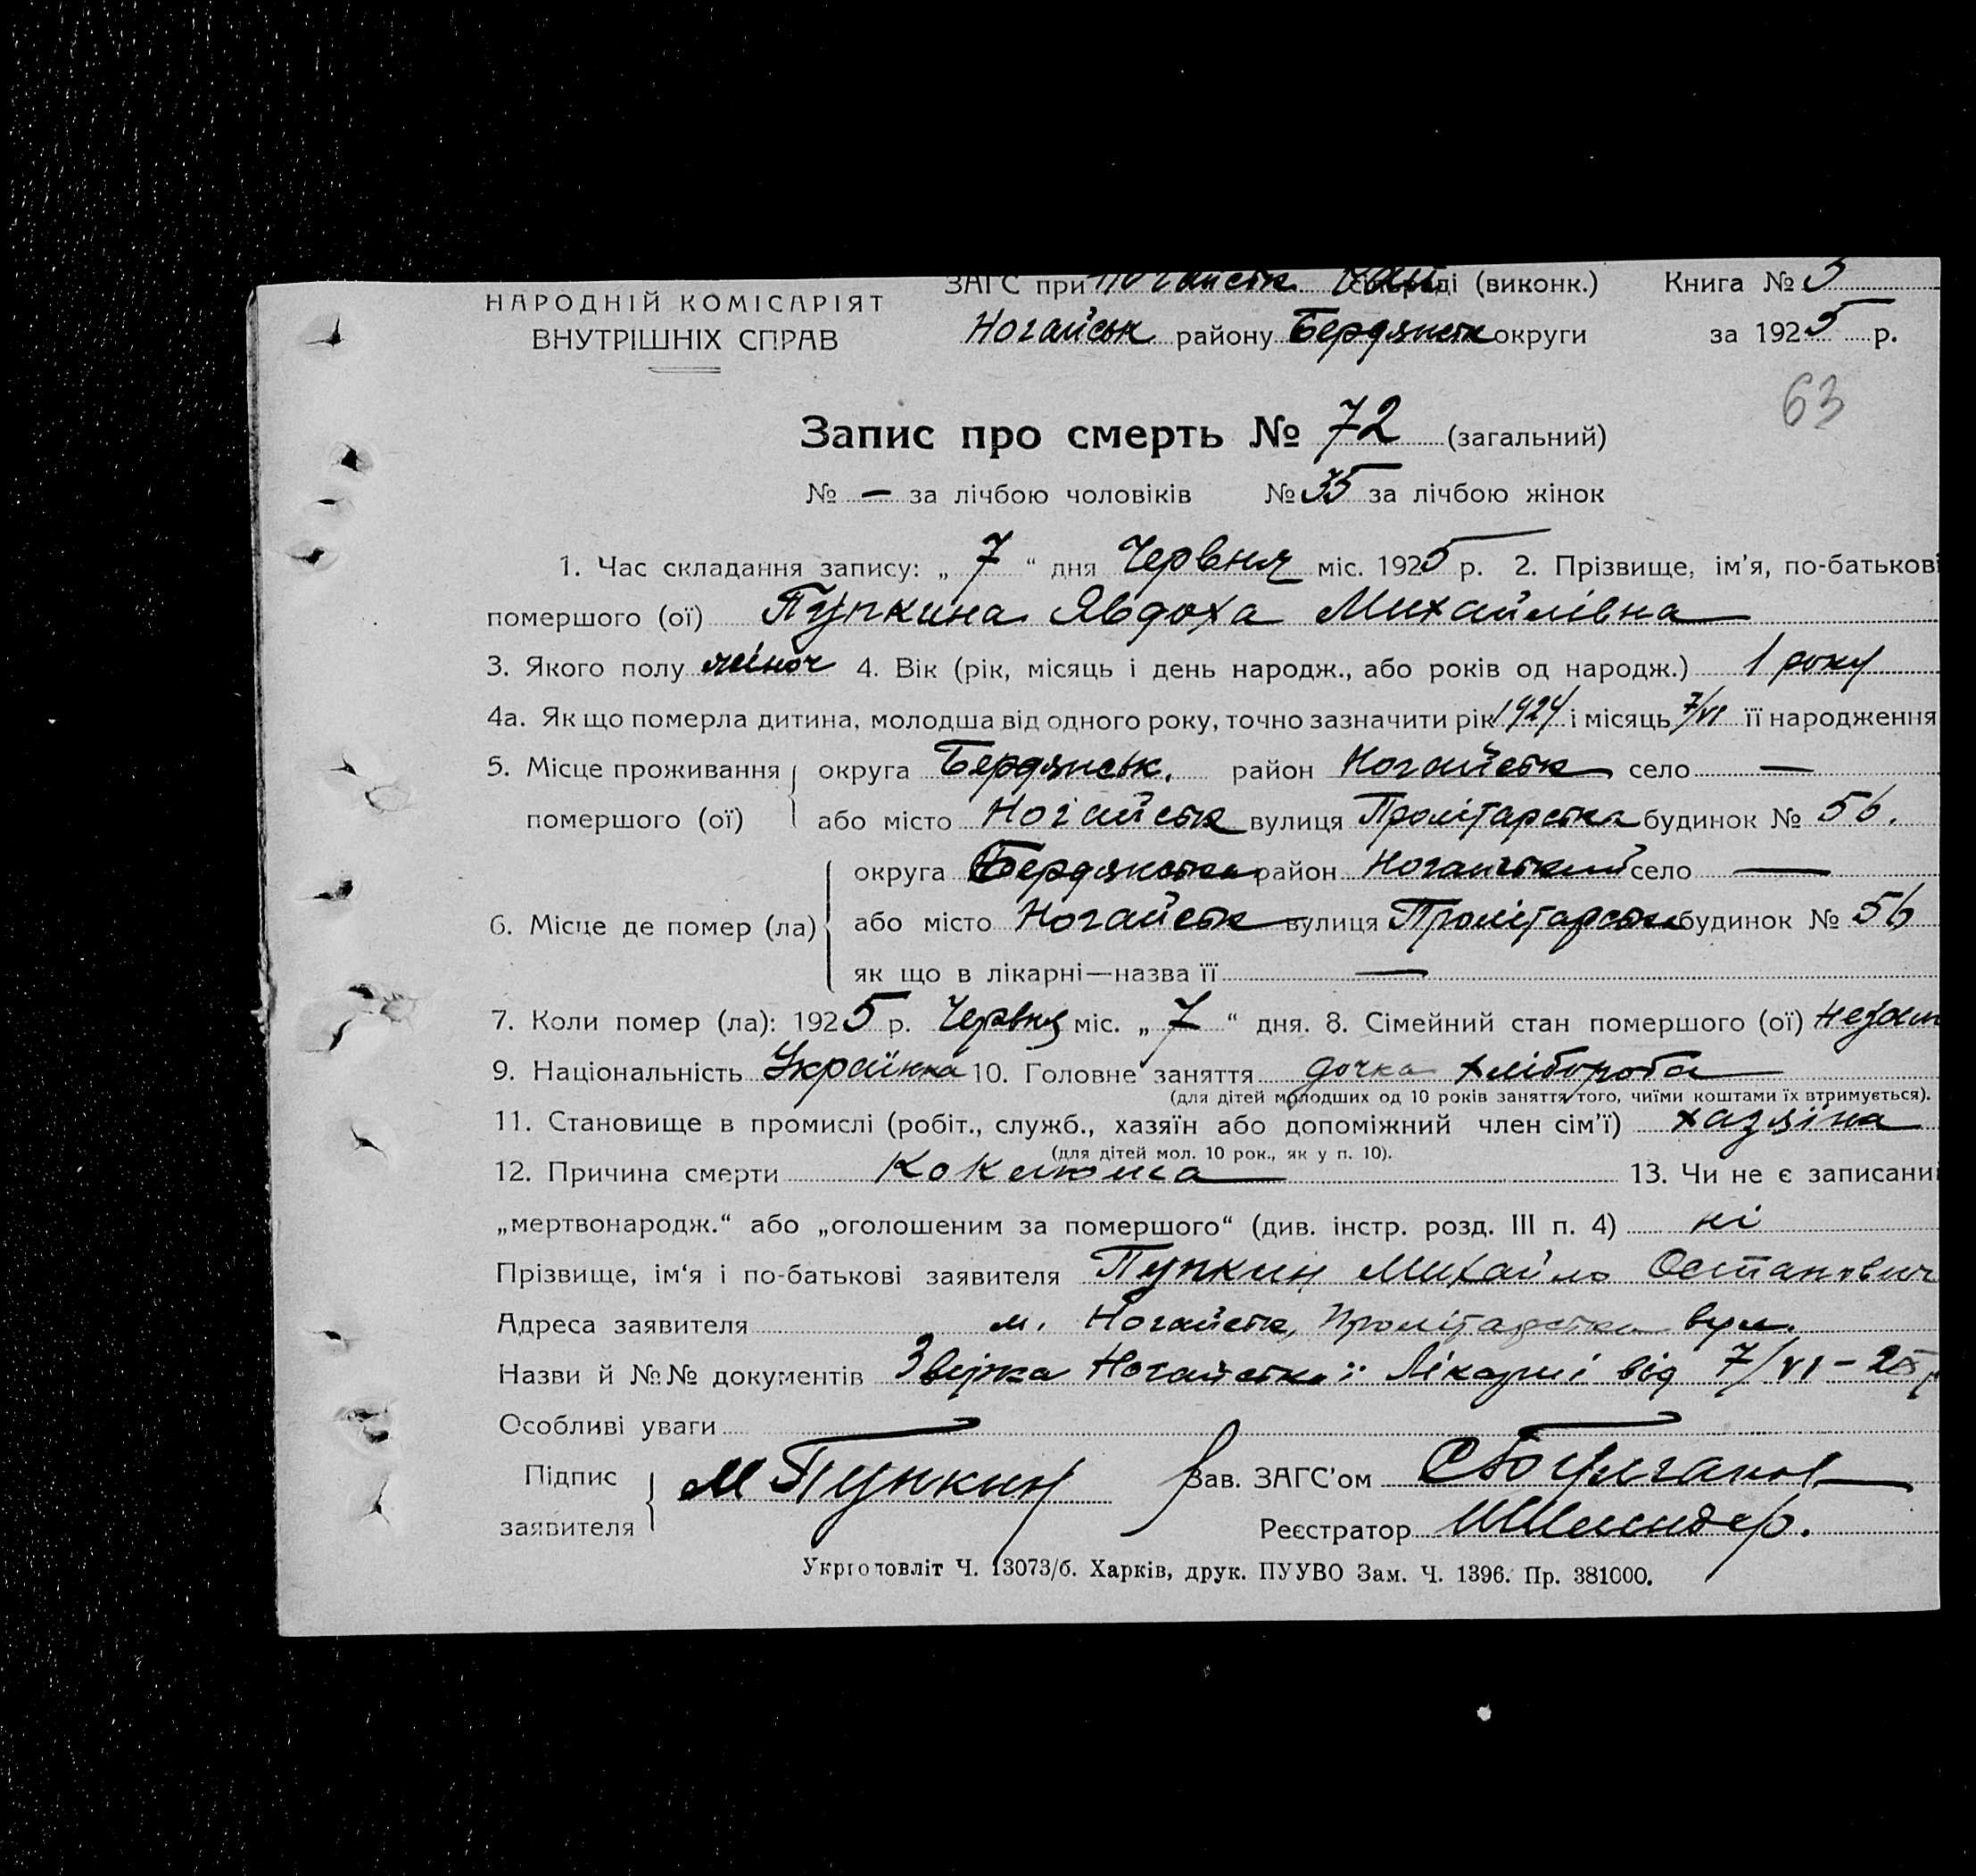 НАРОДНІЙ КОМІСАРІЯТ
ВНУТРІШНІХ СПРАВ
ЗАГС при Ногайськ раді (виконк.) Книга № 5
Ногайськ району Бердянськ округи за 1925 р.
63
Запис про смерть № 72 (загальний)
№ — за лічбою чоловіків № 35 за лічбою жінок
1. Час складання запису: „ 7 “ дня Червня міс. 1925 р. 2. Прізвище, ім'я, по-батькові
помершого (ої) Пупкина Явдоха Михайлівна
3. Якого полу жіноч 4. Вік (рік, місяць і день народж., або років од народж.) 1 року
4а. Як що померла дитина, молодша від одного року, точно зазначити рік 1924 і місяць 7/VI її народження
5. Місце проживання округа Бердянськ. район Ногайськ село —
помершого (ої) або місто Ногайськ вулиця Пролітарська будинок № 56.
округа Бердянська район Ногайський село —
6. Місце де помер (ла) або місто Ногайськ вулиця Пролітарська будинок № 56
як що в лікарні—назва її —
7. Коли помер (ла): 1925 р. Червня міс. „ 7 “ дня. 8. Сімейний стан помершого (ої) незам
9. Національність Українка 10. Головне заняття дочка хлібороба
(для дітей молодших од 10 років заняття того, чиїми коштами їх втримується).
11. Становище в промислі (робіт., служб., хазяїн або допоміжний член сім'ї) хазяїна
(для дітей мол. 10 рок., як у п. 10).
12. Причина смерти Коклюша 13. Чи не є записаний
„мертвонародж.“ або „оголошеним за помершого“ (див. інстр. розд. III п. 4) ні
Прізвище, ім'я і по-батькові заявителя Пупкин Михайло Остапович
Адреса заявителя м. Ногайськ, Пролітарська вул.
Назви й №№ документів Ногайської Лікарні від 7/VI – 25 р
Особливі уваги
Підпис М Пупкин Зав. ЗАГС'ом
заявителя Реєстратор
Укрголовліт Ч. 13073/б. Харків, друк. ПУУВО Зам. Ч. 1396. Пр. 381000.